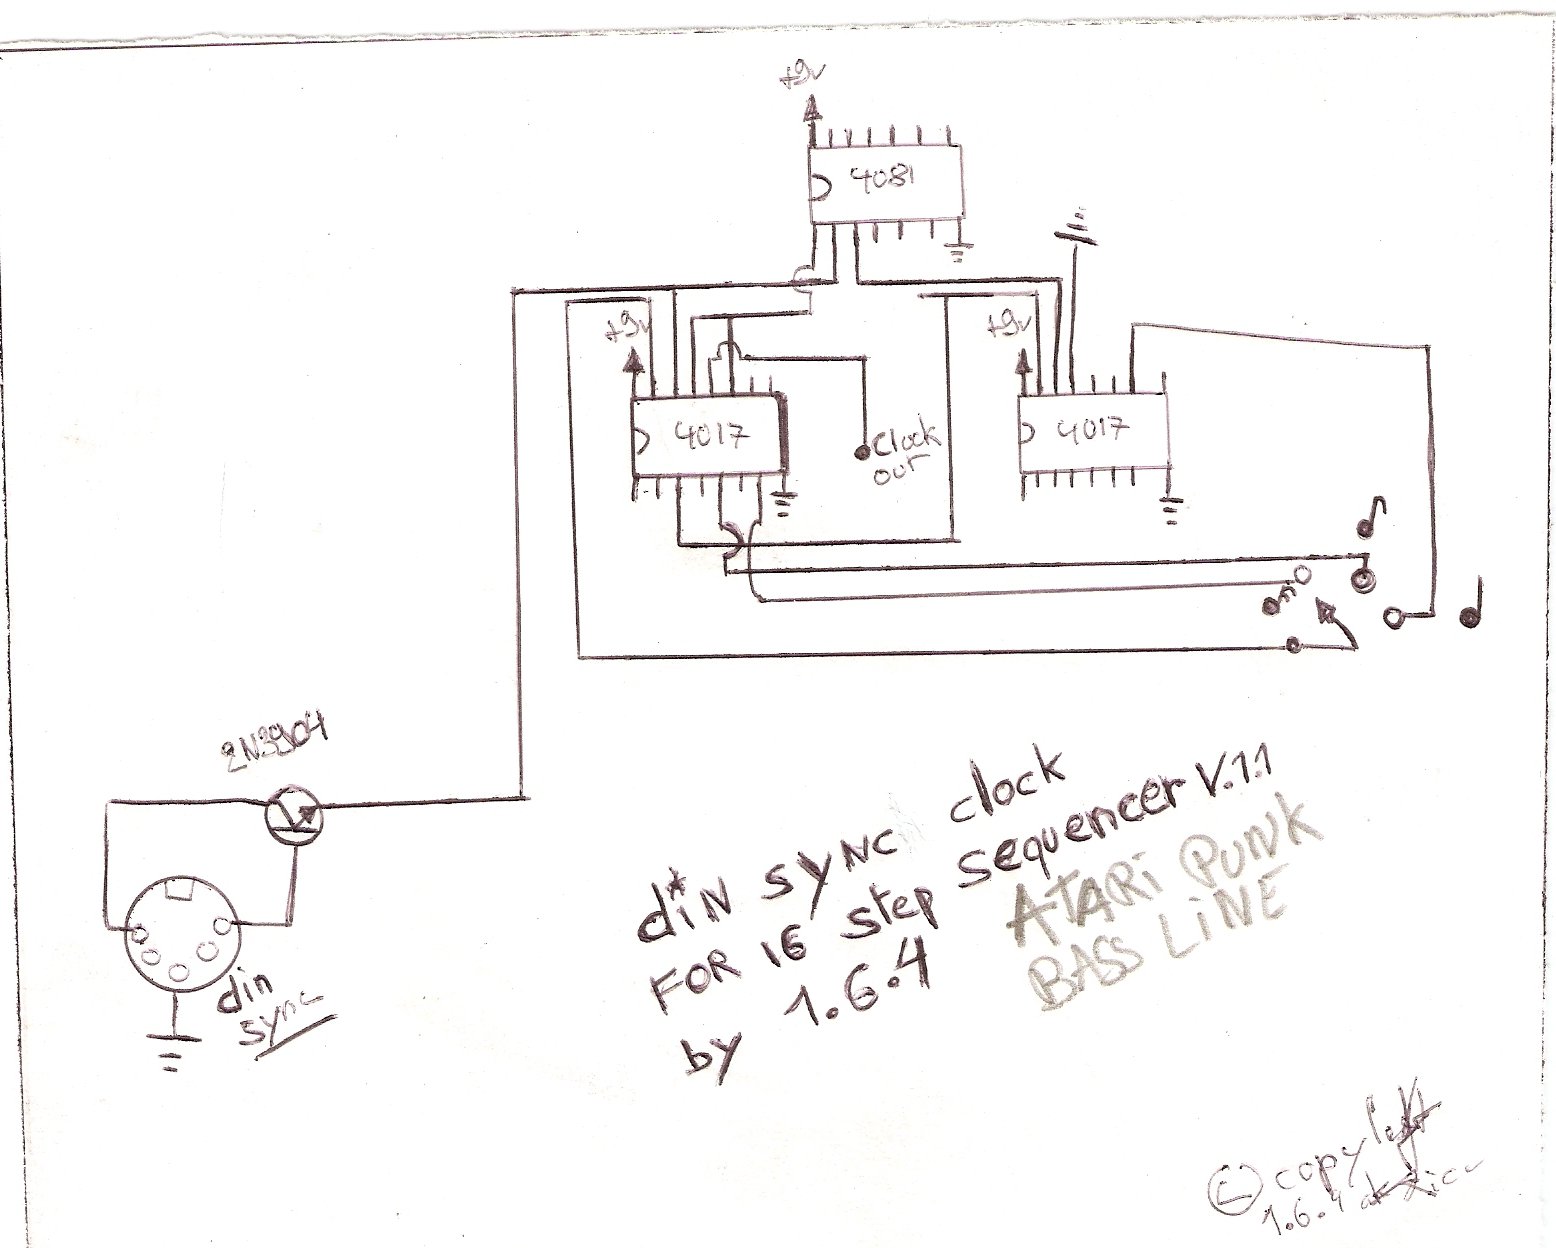 +9v
4081
+9v
+9v
4017
4017
Clock
out
2N3904
din
sync
diN SYNC clock
FOR 16 step sequencer V.1.1
by 1.6.4
ATARi PUNK
BASS LiNE
copyleft
1.6.4